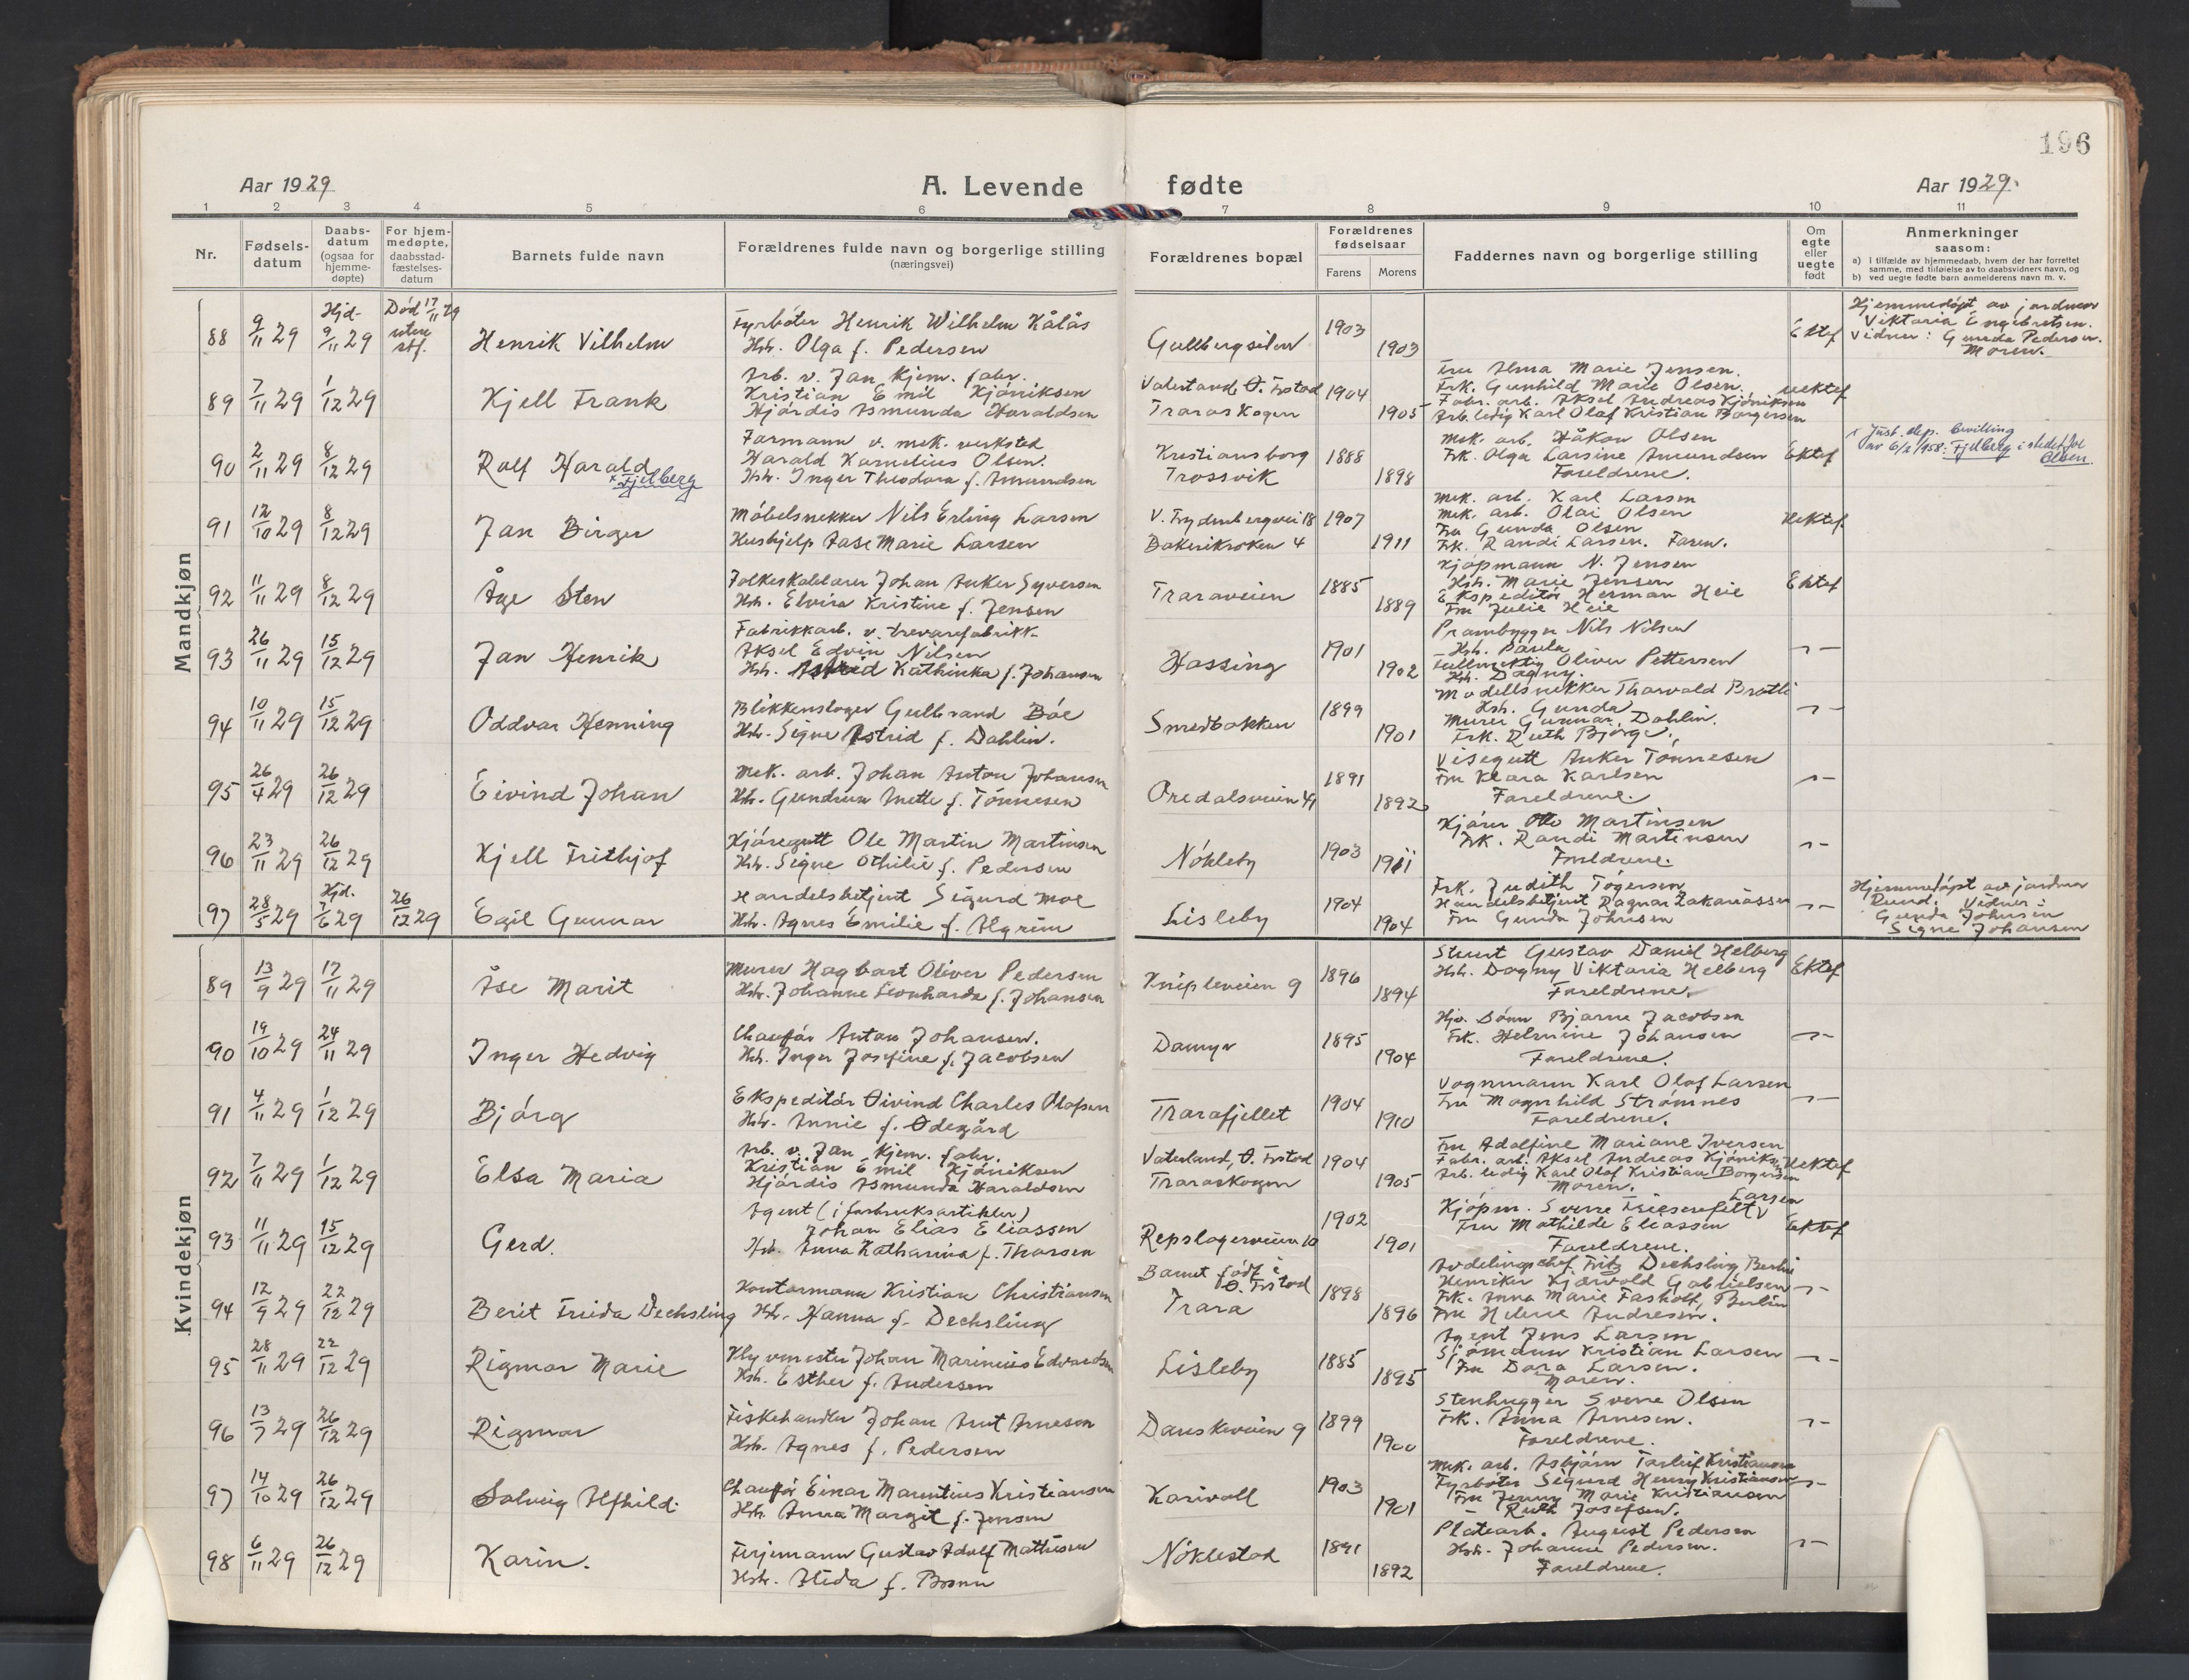 196
Aar 1929
A. Levende fødte
Aar 1929.
1 2 3 4 5 6 7 8 9 10 11
Nr.
Fødsels-
datum
Daabs-
datum
(ogsaa for
hjemme-
døpte)
For hjem-
medøpte,
daabsstad-
fæstelses-
datum
Barnets fulde navn
Forældrenes fulde navn og borgerlige stilling
(næringsvei)
Forældrenes bopæl
Forældrenes
fødselsaar
Farens Morens
Faddernes navn og borgerlige stilling
Om
egte
eller
uegte
født
Anmerkninger
saasom:
a) i tilfælde av hjemmedaab, hvem der har forrettet
samme, med tilføielse av to daabsvidners navn, og
b) ved uegte fødte barn anmelderens navn m. v.
Mandkjøn
88 9/11 29 Hjd. 9/11 29 Död 17/11 29 Henrik Vilhelm
Fyrböter Henrik Wilhelm Kålås
Hstr. Olga f. Pedersen
Gullbergsilen 1903 1903 Ektef
Hjemmedöpt av jordmor
Viktoria Engebretsen.
Vidner: Gunda Pedersen.
Moren.
89 7/11 29 1/12 29 Kjell Frank
Arb. v. Jan Kjem. fabr.
Kristian Emil Kjöniksen
Hjördis Asmunda Haraldsen
Vaterland, Ö. Fr.stad
Traraskogen 1904 1905
Fru Alma Marie Jensen.
Frk. Gunhild Marie Olsen.
Fabr. arb. Aksel Andreas Kjöniksen
Arb. ledig Karl Olaf Kristian Borgersen
uektef
90 2/11 29 8/12 29 Rolf Harald
x Fjelberg
Formann v. mek. verksted
Harald Kornelius Olsen.
Hstr. Inger Theodora f. Amundsen
Kristiansborg
Trossvik 1888 1898
Mek. arb. Håkon Olsen
Frk. Olga Larsine Amundsen
Foreldrene.
Ektef
x Just. dep. bevilling
av 6/2 1958: Fjelberg i stedet for
Olsen.
91 12/10 29 8/12 29 Jan Birger
Möbelsnekker Nils Erling Larsen
Hushjelp Aase Marie Larsen
V. Frydenbergvei 18
Bakerikroken 4 1907 1911
Mek. arb. Karl Larsen
Mek. arb. Olai Olsen
Fru Gunda Olsen
Frk. Randi Larsen. Faren.
Uektef.
92 11/11 29 8/12 29 Åge Sten
Folkeskolelærer Johan Anker Syversen
Hstr. Elvira Kristine f. Jensen
Traraveien 1885 1889
Kjöpmann N. Jensen
Hstr. Marie Jensen
Ekspeditör Herman Heie
Fru Julie Heie
Ektef
93 26/11 29 15/12 29 Jan Henrik
Fabrikkarb. v. trevarefabrikk
Aksel Edvin Nilsen
Hstr. Astrid Kathinka f. Johansen
Hassing 1901 1902
Prambygger Nils Nilsen
Hstr. Paula
Fullmektig Oliver Pettersen
Hstr. Dagny.
94 10/11 29 15/12 29 Oddvar Henning
Blikkenslager Gulbrand Böe
Hstr. Signe Astrid f. Dahlin.
Smedbakken 1899 1901
Modellsnekker Thorvald Bratli
Hstr. Gunda
Murer Gunnar Dahlin.
Frk. Ruth Bjørge.
95 26/4 29 26/12 29 Eivind Johan
Mek. arb. Johan Anton Johansen
Hstr. Gundrun Anette f. Tönnesen
Oredalsveien 41 1891 1892
Visegutt Anker Tönnesen
Fru Klara Karlsen
Foreldrene.
96 23/11 29 26/12 29 Kjell Frithjof
Kjöregutt Ole Martin Martinsen
Hstr. Signe Othilie f. Pedersen
Nökleby 1903 1911
Kjörer Otto Martinsen
Frk. Randi Martinsen
Foreldrene.
97 28/5 29 Hjd. 7/6 29 26/12 29 Egil Gunnar
Handelsbetjent Sigurd Moe
Hstr. Agnes Emilie f. Algrim
Lisleby 1904 1904
Frk. Judith Togersen
Handelsbetjent Ragnar Zakariassen
Fru Gunda Johnsen
Hjemmedöpt av jordmor
Rund. Vidner:
Gunda Johnsen
Signe Johansen
Kvindekjøn
89 13/9 29 17/11 29 Åse Marit
Murer Hagbart Oliver Pedersen
Hstr. Johanne Leonharda f. Johansen
Knipleveien 9 1896 1894
Stuert Gustav Daniel Helberg
Hstr. Dagny Viktoria Helberg
Foreldrene.
Ektef
90 19/10 29 24/11 29 Inger Hedvig
Chauför Anton Johansen.
Hstr. Inger Josefine f. Jacobsen
Damyr 1895 1904
Hjv. sönn Bjarne Jacobsen
Frk. Helmine Johansen
Foreldrene.
91 4/11 29 1/12 29 Björg
Ekspeditör Öivind Charles Olafsen
Hstr. Annie f. Ödegård
Trarafjellet 1904 1910
Vognmann Karl Olaf Larsen
Fru Magnhild Strömnes
Foreldrene.
92 7/11 29 1/12 29 Elsa Maria
Arb. v. Jan Kjem. fabr.
Kristian Emil Kjöniksen
Hjördis Asmunda Haraldsen
Vaterland, Ö. Fr.stad
Traraskogen 1904 1905
Fru Adolfine Mariane Iversen
Fabr. arb. Aksel Andreas Kjöniksen
Arb. ledig Karl Olaf Kristian Borgersen
Moren.
Uektef
93 11/11 29 15/12 29 Gerd.
Agent (i forbruksartikler)
Johan Elias Eliassen
Hstr. Anna Katharina f. Thorsen
Repslagerveien 10 1902 1901
Larsen
Kjöpm. Sverre Friesenfelt
Fru Mathilde Eliassen
Foreldrene.
Ektef
94 12/9 29 22/12 29 Berit Frida Dechsling
Kontormann Kristian Christiansen
Hstr. Hanna f. Dechsling
Barnet födt i
Ö. Fr.stad
Trara 1898 1896
Avdelingschef Fritz Dechsling Berlin
Henriker Kjærvold Gabrielsen
Frk. Anna Marie Fasholt, Berlin
Fru Helene Andresen.
95 28/11 29 22/12 29 Rigmor Marie
Hstr. Esther f. Andersen
Lisleby 1885 1895
Agent Jens Larsen
Sjömann Kristian Larsen
Fru Dora Larsen.
Moren.
96 13/7 29 26/12 29 Rigmor
Fiskehandler Johan Arnt Arnesen
Hstr. Agnes f. Pedersen
Danskeveien 9 1899 1900
Stenhugger Sverre Olsen
Frk. Anna Arnesen.
Foreldrene.
97 14/10 29 26/12 29 Solveig Alfhild.
Chauför Einar Marentius Kristiansen
Hstr. Anna Margit f. Jensen
Karivoll 1903 1901
Mek. arb. Asbjörn Torleif Kristiansen
Fyrböter Sigurd Henry Kristiansen
Fru Jenny Marie Kristiansen
– Ruth Josefsen.
98 6/11 29 26/12 29 Karin.
Ferjemann Gustav Adolf Mathisen
Hstr. Alida f. Brenn
Nöklestad 1891 1892
Platearb. August Pedersen
Hstr. Johanne Pedersen.
Foreldrene.